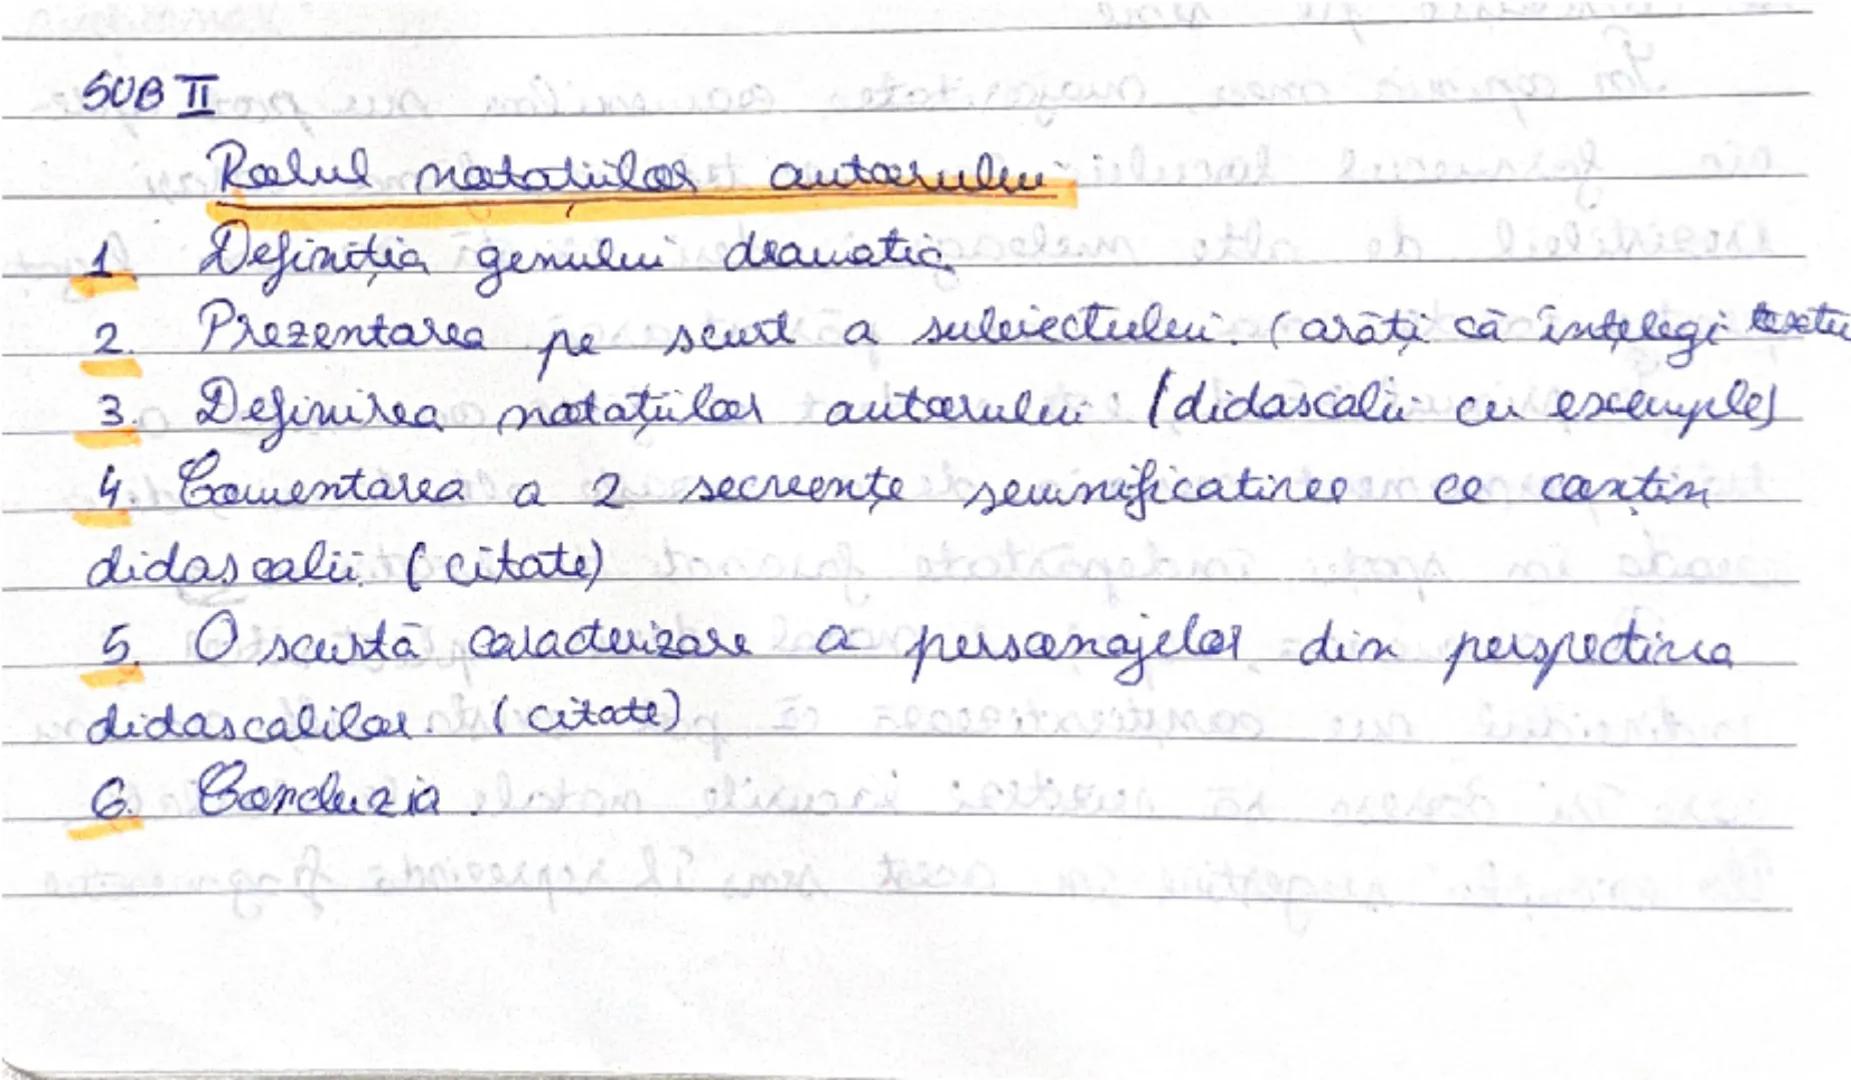 SUB II
Rolul notațiilor autorului
1. Definiția genului dramatic
2. Prezentarea pe scurt a subiectului. (arăți că înțelegi textu
3. Definirea notațiilor autorului (didascalii cu exemple)
4. Comentarea a 2 secvențe semnificative ce conțin
didascalii (citate)
5. O scurtă caracterizare a personajelor din perspectiva
didascalilor. (citate)
6. Concluzia.